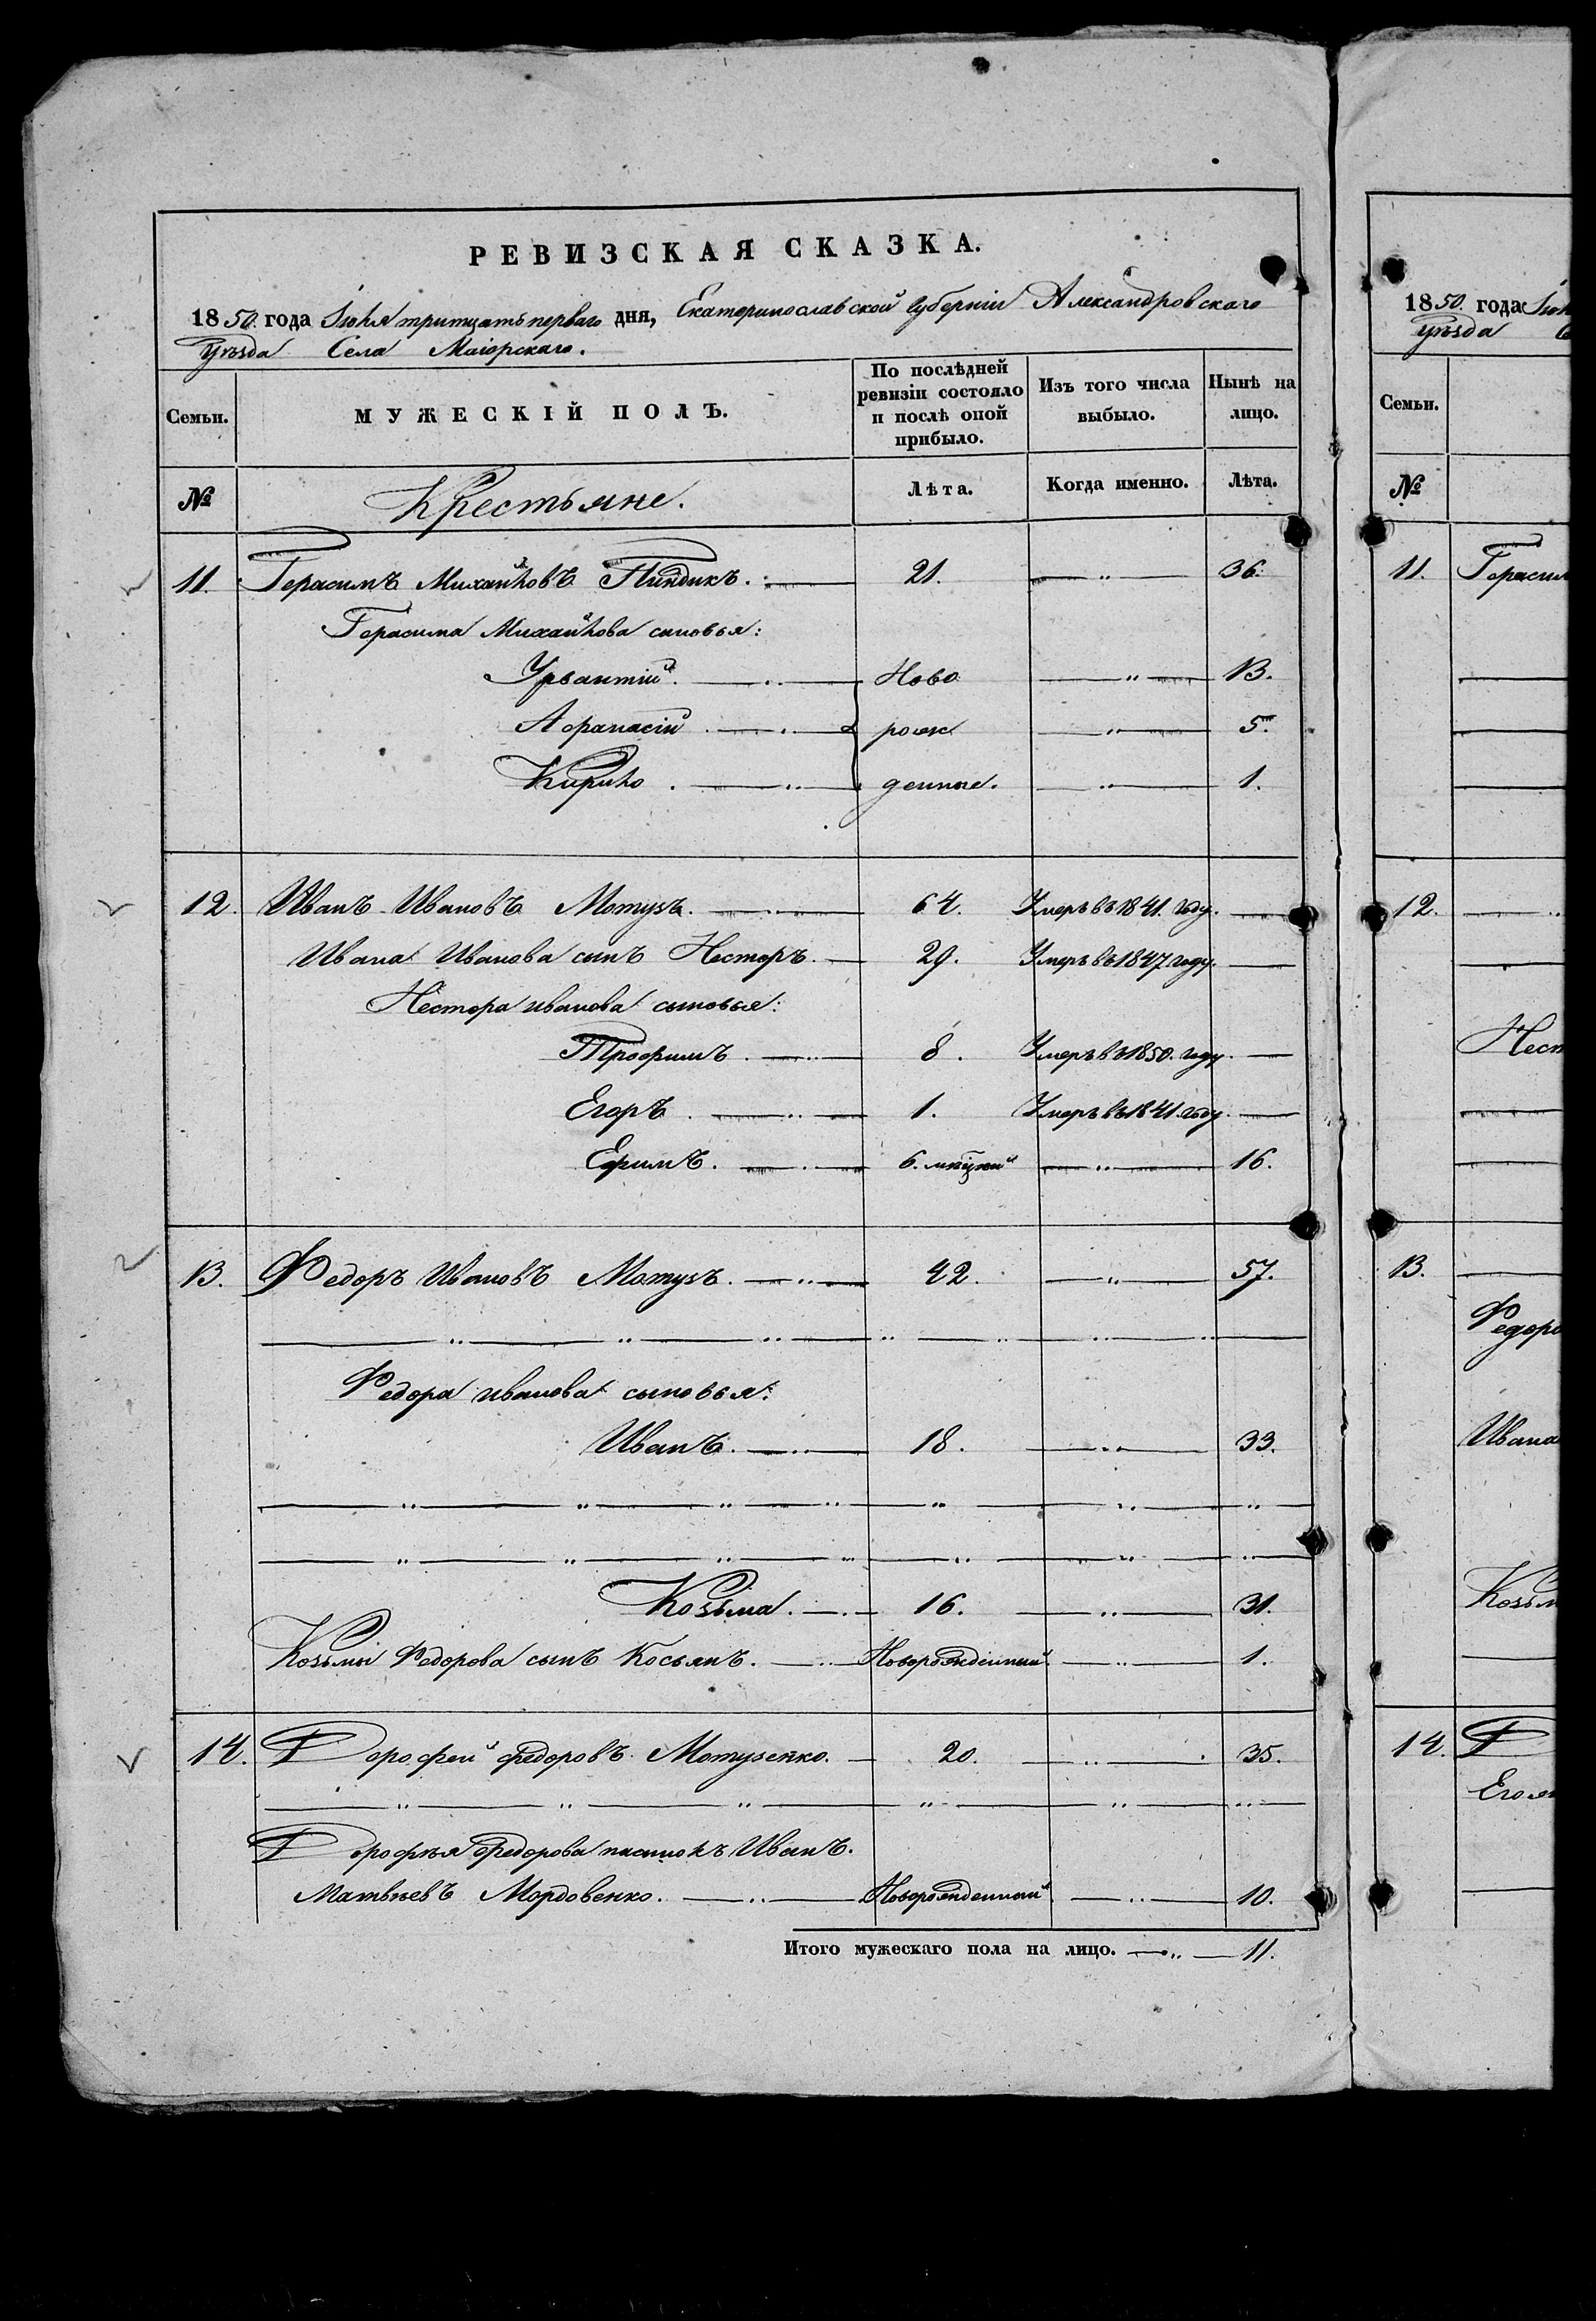 РЕВИЗСКАЯ СКАЗКА.
1850. года Іюля тритцать перваго дня, Екатеринославской Губерніи Александровскаго
Уѣзда Села Маіорскаго.
Семьи. МУЖЕСКІЙ ПОЛЪ. По послѣдней ревизіи состояло и послѣ оной прибыло. Изъ того числа выбыло. Нынѣ на лицо.
№ Крестьяне. Лѣта. Когда именно. Лѣта.
11. Герасимъ Михайловъ Пиндикъ. 21. 36.
Герасима Михайлова сыновья:
Ново 13.
Афанасій рож 5.
Кирило денные. 1.
12. Иванъ Ивановъ Мотузъ. 64. Умеръ въ 1841. году.
Ивана Иванова сынъ Несторъ. 29. Умеръ въ 1847 году.
Нестора иванова сыновья:
Трофимъ. 8. Умеръ въ 1850. году.
Егоръ. 1. Умеръ въ 1841. году.
Ефимъ. 6. мѣсцный 16.
13. Федоръ Ивановъ Мотузъ. 42. 57.
Федора иванова сыновья:
Иванъ. 18. 33.
Козьма. 16. 31.
Козьмы Федорова сынъ Косьянъ. Новорожденный. 1.
14. Дорофей федоровъ Мотузенко. 20. 35.
Дорофѣя Федорова пасынокъ Иванъ.
Матвѣевъ Мордовенко. Новорожденный 10.
Итого мужескаго пола на лицо. 11.
1850. года
Уѣзда
Семьи.
№
11.
12.
13.
Ивана
14.